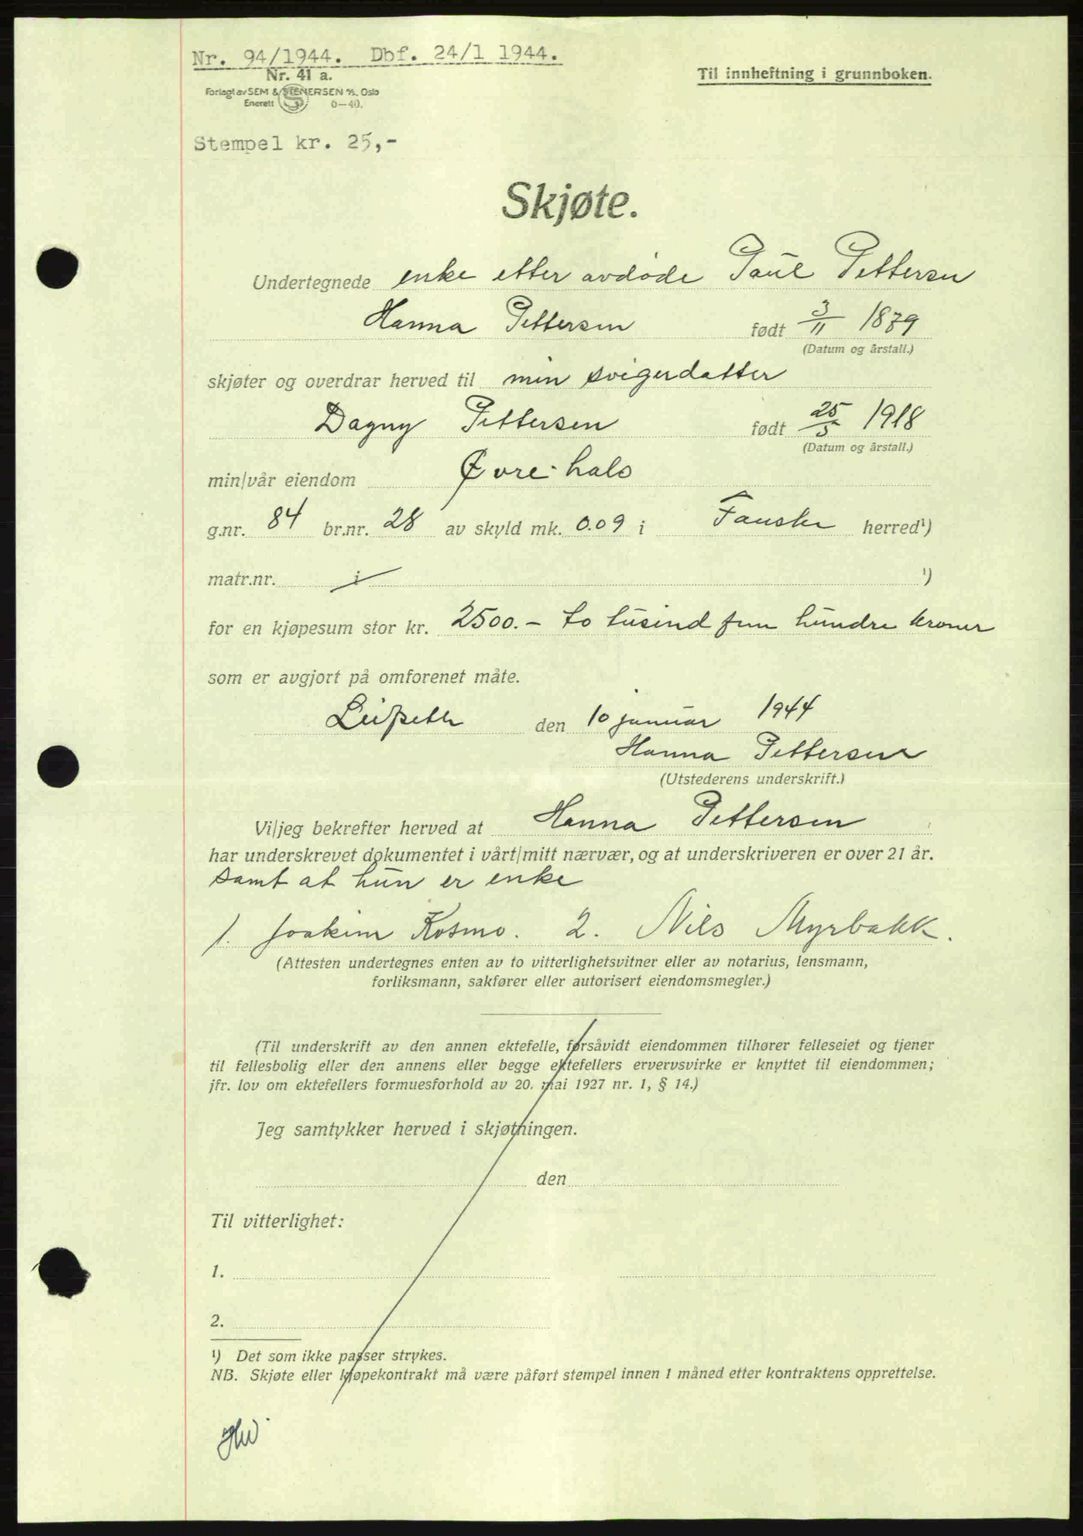 Nr. 94/1944. Dbf. 24/1 1944.
Nr. 41 a.
Til innheftning i grunnboken.
Forlagt av SEM & STENERSEN A/S, Oslo
Enerett S 6-40.
Stempel kr. 25,-
Skjøte.
Undertegnede enke etter avdøde Paul Pettersen
Hanna Pettersen født 3/11 1879
(Datum og årstall.)
skjøter og overdrar herved til min svigerdatter
Dagny Pettersen født 25/5 1918
(Datum og årstall.)
min/vår eiendom Øvre-hals
g.nr. 84 br.nr. 28 av skyld mk. 0.09 i Fauske herred¹)
matr.nr. i ¹)
for en kjøpesum stor kr. 2500.- to tusind fem hundre kroner
som er avgjort på omforenet måte.
den 10 januar 1944
Hanna Pettersen
(Utstederens underskrift.)
Vi/jeg bekrefter herved at Hanna Pettersen
har underskrevet dokumentet i vårt/mitt nærvær, og at underskriveren er over 21 år.
samt at hun er enke
1. Joakim Kosmo. 2. Nils Myrbakk.
(Attesten undertegnes enten av to vitterlighetsvitner eller av notarius, lensmann,
forliksmann, sakfører eller autorisert eiendomsmegler.)
(Til underskrift av den annen ektefelle, forsåvidt eiendommen tilhører felleseiet og tjener
til fellesbolig eller den annens eller begge ektefellers ervervsvirke er knyttet til eiendommen;
jfr. lov om ektefellers formuesforhold av 20. mai 1927 nr. 1, § 14.)
Jeg samtykker herved i skjøtningen.
den
Til vitterlighet:
1.
2.
¹) Det som ikke passer strykes.
NB. Skjøte eller kjøpekontrakt må være påført stempel innen 1 måned etter kontraktens opprettelse.